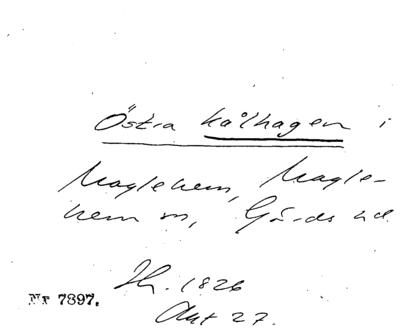 Östra kålhagen i
Maglehem, Magle-
hem sn, Gärds hd
Jh. 1826
Akt 27.
Nr 7897.